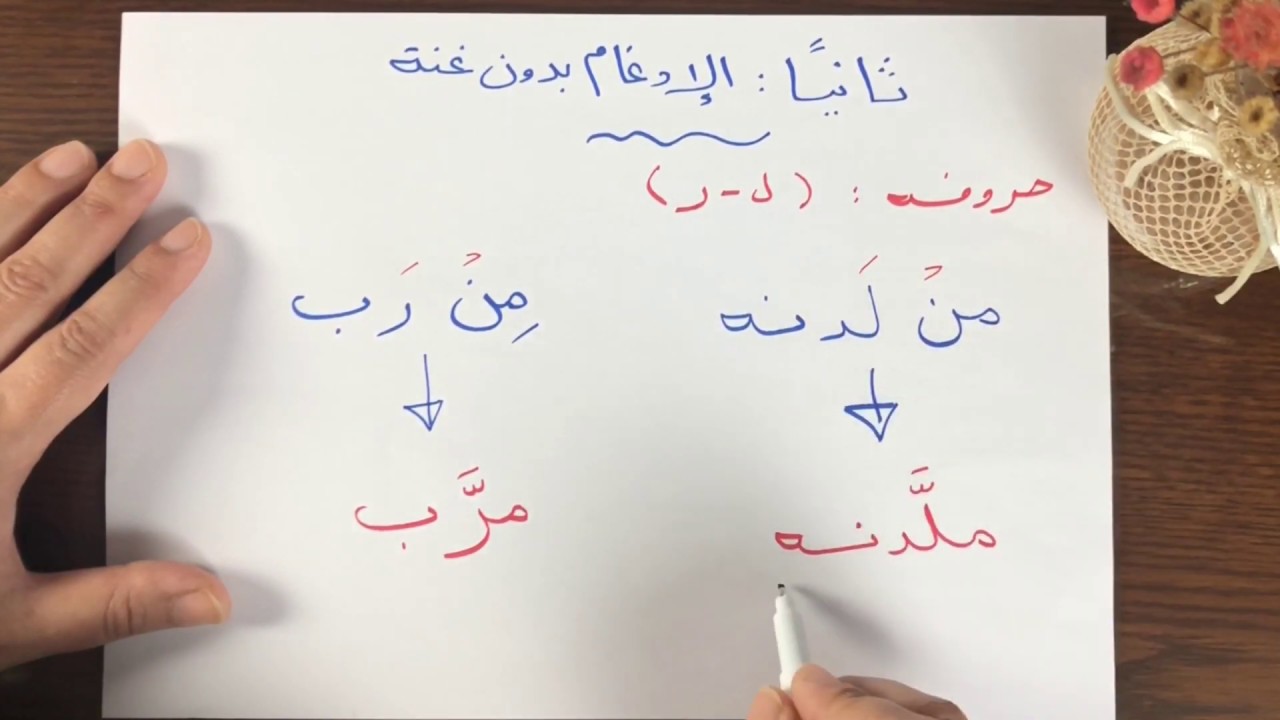 ثانيًا : الإدغام بدون غنة
حروفه : ( ل - ر )
منْ لَدنه مِنْ رَب
ملَّدنه مرَّب